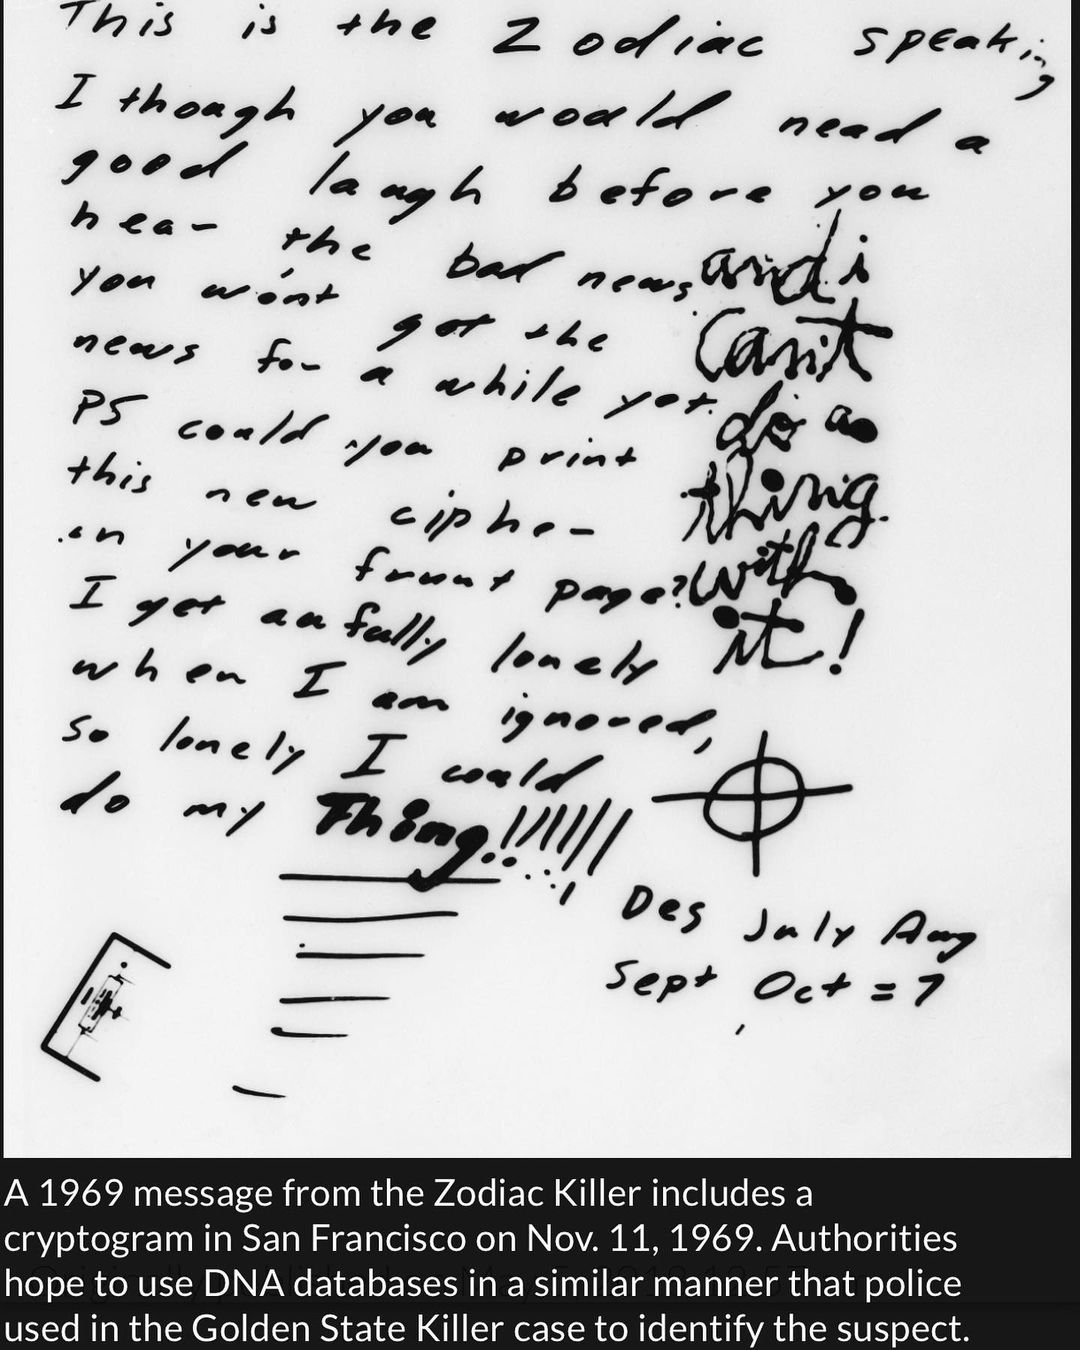 This is the Zodiac speaking
I though you woald nead a
good laagh before you
hear the bad news
you won't get the
news for a while yet.
PS could you print
this new cipher
on your frunt page?
I get aufully lonely
when I am ignored,
so lonely I could
do my Thing!!!!!!
and i
can't
do a
thing
with
it!
Des July Aug
Sept Oct = 7
A 1969 message from the Zodiac Killer includes a
cryptogram in San Francisco on Nov. 11, 1969. Authorities
hope to use DNA databases in a similar manner that police
used in the Golden State Killer case to identify the suspect.